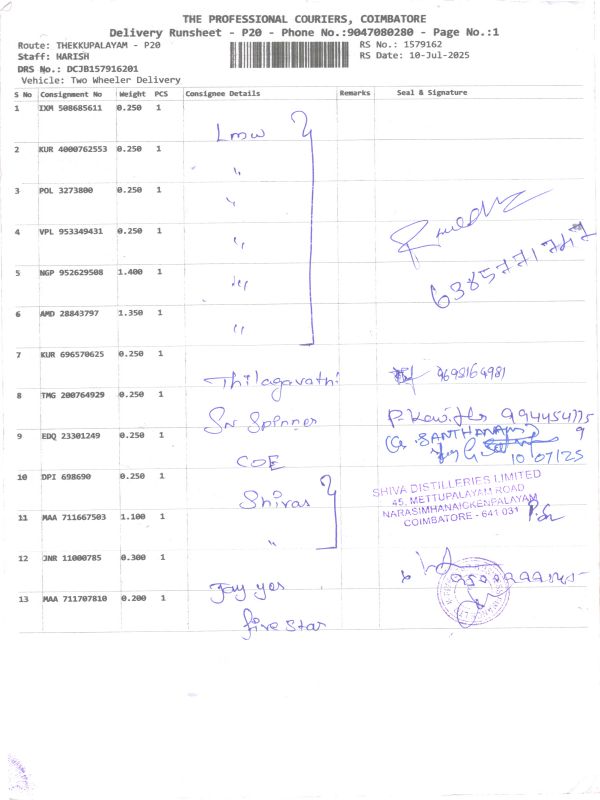 THE PROFESSIONAL COURIERS, COIMBATORE
Delivery Runsheet - P20 - Phone No.:9047080280 - Page No.:1
Route: THEKKUPALAYAM - P20
RS No.: 1579162
Staff: HARISH
RS Date: 10-Jul-2025
DRS No.: DCJB157916201
Vehicle: Two Wheeler Delivery
S No Consignment No Weight PCS Consignee Details Remarks Seal & Signature
1 IXM 508685611 0.250 1
Lmw
2 KUR 4000762553 0.250 1
"
3 POL 3273800 0.250 1
"
4 VPL 953349431 0.250 1
"
5 NGP 952629508 1.400 1
"
6 AMD 28843797 1.350 1
"
7 KUR 696570625 0.250 1
Thilagavathi
8 TMG 200764929 0.250 1
Spinner
9 EDQ 23301249 0.250 1
G. SANTHANAM
COE
10/07/25
10 DPI 698690 0.250 1
Shivas
SHIVA DISTILLERIES LIMITED
45, METTUPALAYAM ROAD
NARASIMHANAICKENPALAYAM
COIMBATORE - 641 031
11 MAA 711667503 1.100 1
"
12 JNR 11000785 0.300 1
Jay yes
13 MAA 711707810 0.200 1
five star